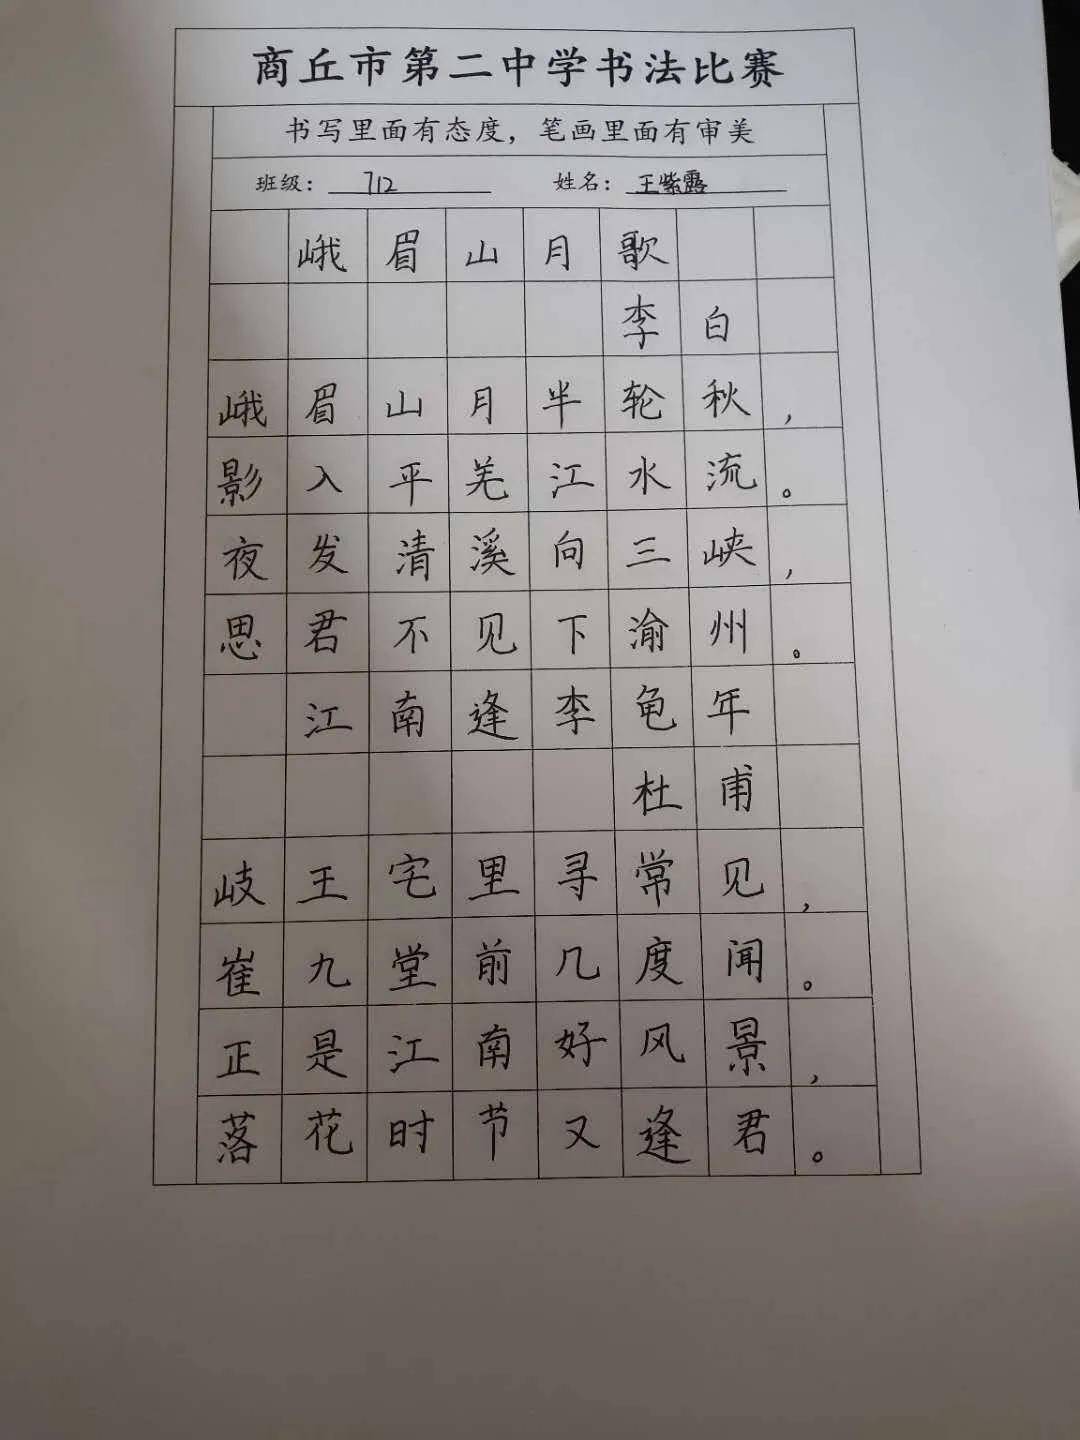 商丘市第二中学书法比赛
书写里面有态度，笔画里面有审美
班级：712 姓名：王紫露
峨眉山月歌
李白
峨眉山月半轮秋，
影入平羌江水流。
夜发清溪向三峡，
思君不见下渝州。
江南逢李龟年
杜甫
岐王宅里寻常见，
崔九堂前几度闻。
正是江南好风景，
落花时节又逢君。